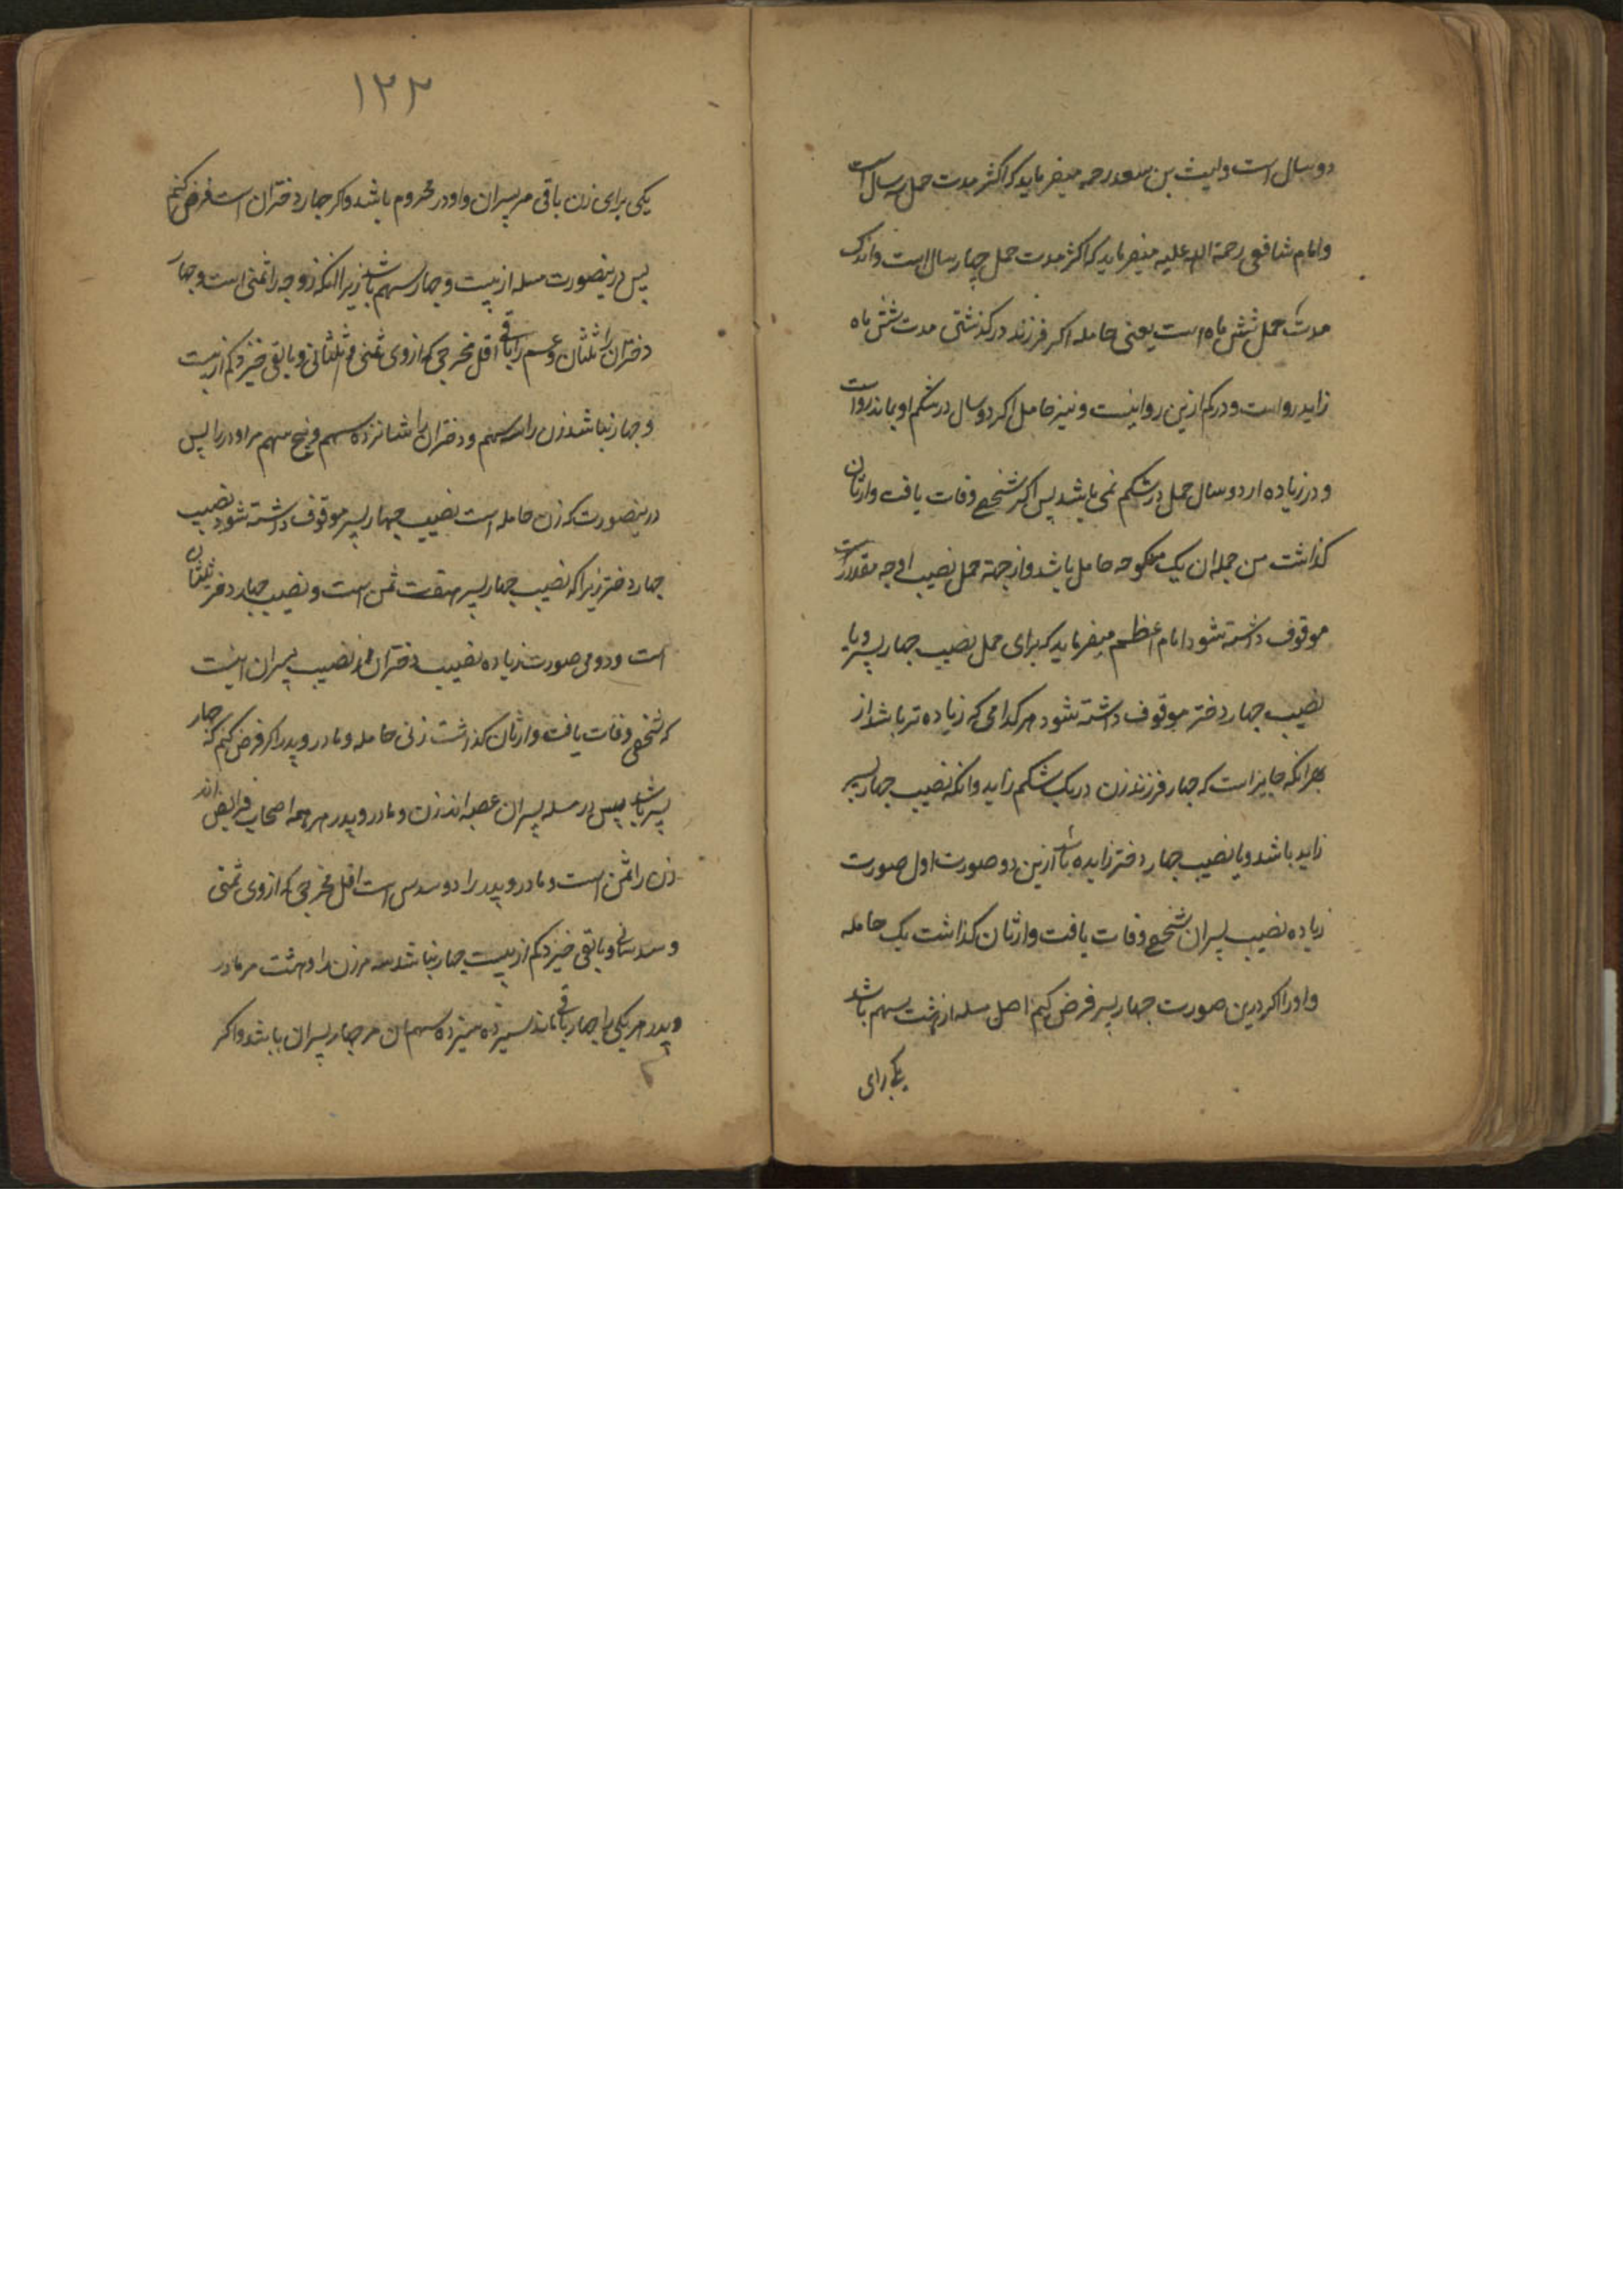 دو سال است و لیث بن سعد رحمه میفرماید که اکثر مدت حمل سه سال است
و امام شافعی رحمة الله علیه میفرماید که اکثر مدت حمل چهار سال است و اندک
مدت حمل شش ماه است یعنی حامله اکر فرزند در کذشتی مدت شش ماه
زاید رواست و در کم ازین روا نیست و نیز حامل اکر دو سال در شکم او بماند رواست
و در زیاده از دو سال حمل در شکم نمی باشد پس اکر شخصی وفات یافت وارثان
کذاشت من جمله ان یک منکوحه حامل باشد و از جهة حمل نصیب او چه مقدار است
موقوف داشته شود امام اعظم میفرماید که برای حمل نصیب چهار پسر و یا
نصیب چهار دختر موقوف داشته شود هر کدامی که زیاده تر باشد از
بهر انکه جایز است که چهار فرزند زن در یک شکم زاید وانکه نصیب چهار پسر
زاید باشد و یا نصیب چهار دختر زایده باشد ازین دو صورت اول صورت
زیاده نصیب پسران شخصی وفات یافت وارثان کذاشت یک حامله
و اودر اکر درین صورت چهار پسر فرض کنیم اصل مسله از هشت سهم باشد
یکی برای
۱۲۲
یکی برای زن باقی مر پسران و اودر محروم باشد و اکر چهار دختران است فرض کنیم
پس درینصورت مسله از بیست و چهار سهم باشد زیرا انکه زوجه را ثمنی است و چهار
دختران را ثلثان و عم را باقی اقل مخرجی که از وی ثمنی و ثلثانی و بابقی خیزد کم از بیست
و چهار نباشد زن را سه سهم و دختران را شانزده سهم و پنج سهم مر اودر را پس
درینصورت که زن حامله است نصیب چهار پسر موقوف داشته شود نصیب
چهار دختر زیرا که نصیب چهار پسر هفت ثمن است و نصیب چهار دختر ثلثان
است و دومی صورت زیاده نصیب دختران از نصیب پسران اینست
که شخصی وفات یافت وارثان کذاشت زنی حامله و مادر و پدر اکر فرض کنیم که چهار
پسر باشد پس در مسله پسران عصبه اند زن و مادر و پدر هر همه اصحاب فرایض اند
زن را ثمن است و مادر و پدر را دو سدس است اقل مخرجی که از وی ثمنی
و سدسانی و بابقی خیزد کم از بیست چهار نباشد سه مر زن را و هشت مر مادر
و پدر هر یکی را چهار باقی ماند سیزده سیزده سهم ان مر چهار پسران باشد و اکر